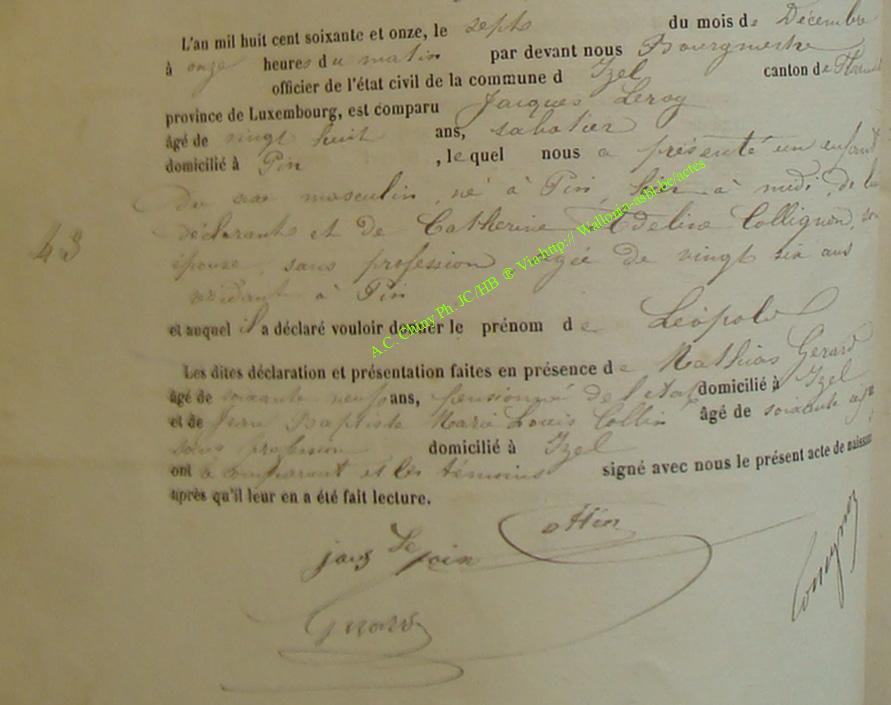 L'an mil huit cent soixante et onze, le sept du mois de Décembre
à onze heures du matin par devant nous Bourgmestre
officier de l'état civil de la commune d Izel canton de
province de Luxembourg, est comparu Jacques Leroy
âgé de vingt huit ans, sabotier
domicilié à Pin, lequel nous a présenté un enfant
du sexe masculin, né à Pin, hier à midi, de lui
déclarant et de Catherine Edelise Collignon, son
épouse, sans profession âgée de vingt six ans
résidante à Pin
et auquel il a déclaré vouloir donner le prénom de Léopold
Les dites déclaration et présentation faites en présence de Mathias Gerard
âgé de soixante neuf ans, pensionné de l'état domicilié à Izel
et de Jean Baptiste Marie Louis Collin âgé de soixante
sans profession domicilié à Izel
ont le comparant et les témoins signé avec nous le présent acte de naissan
après qu'il leur en a été fait lecture.
43
A.C. Chiny Ph. JC /HB ® Via http:// Wallonia-asbl.be/actes